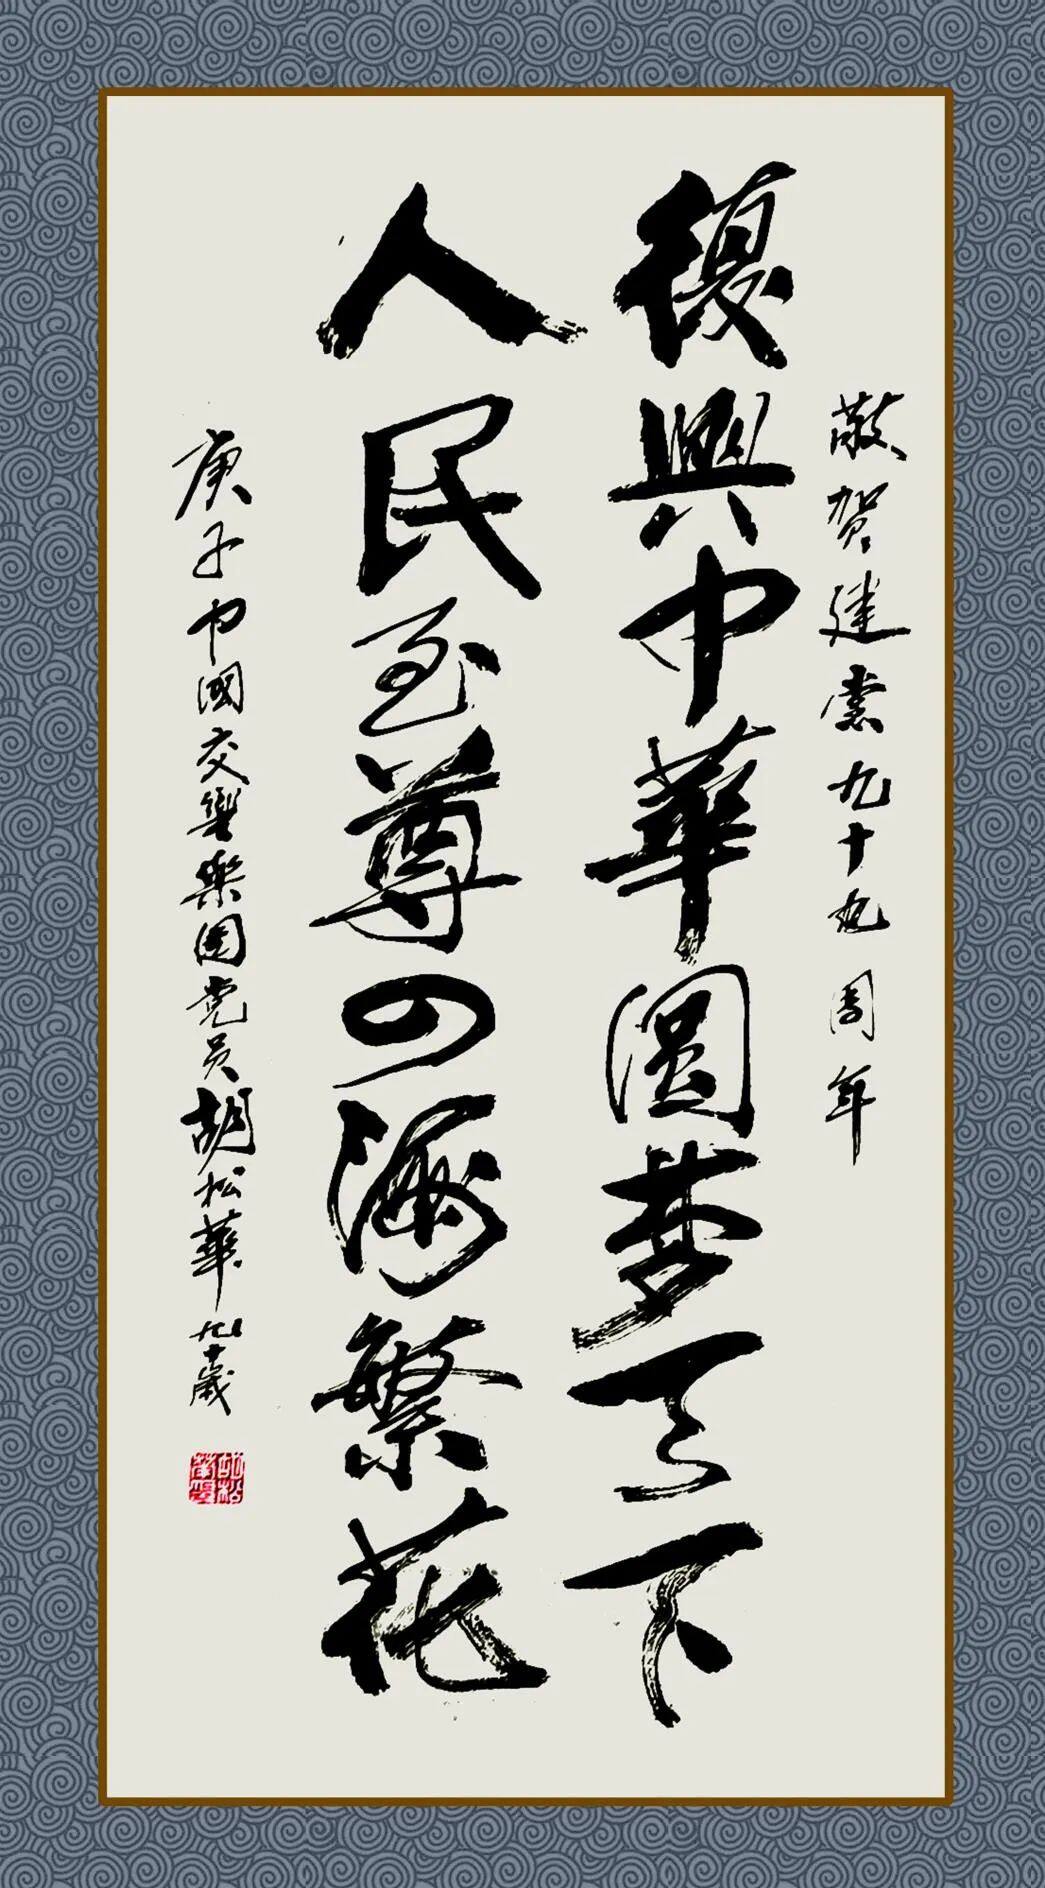 敬贺建黨九十九周年
復興中華圓夢天下
人民至尊四海繁花
庚子中國交響樂團党员胡松華九十歲
胡松華印